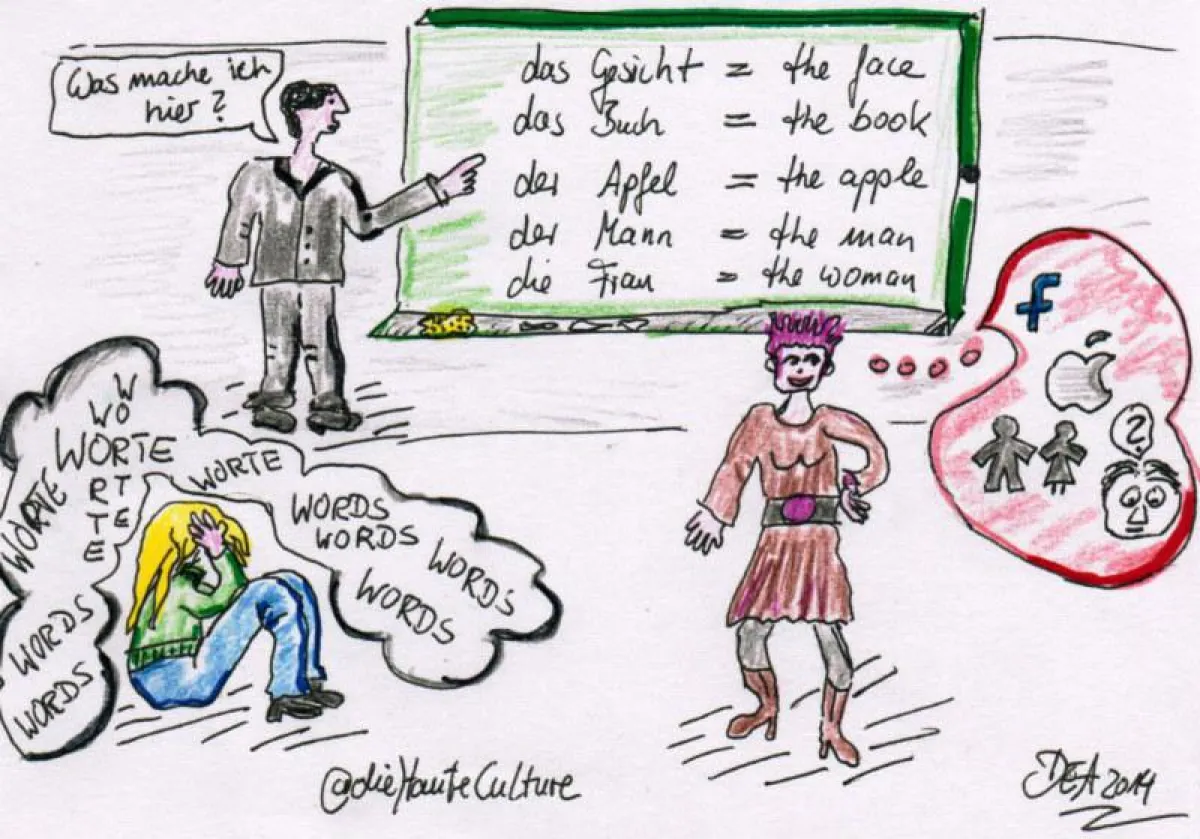 Was mache ich
hier?
das Gesicht = the face
das Buch = the book
der Apfel = the apple
der Mann = the man
die Frau = the woman
f
?
W
WO
WORTE
RT
TE
E
WORTE
WORTE
WORDS
WORDS
WORDS
WORDS
WORDS
WORDS
@dieHauteCulture
DEA 2014